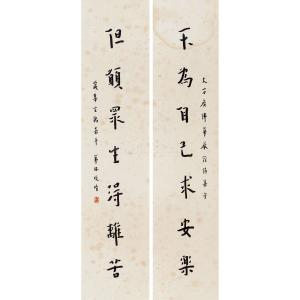 大方廣佛華嚴經集句
不為自己求安樂
但願眾生得離苦